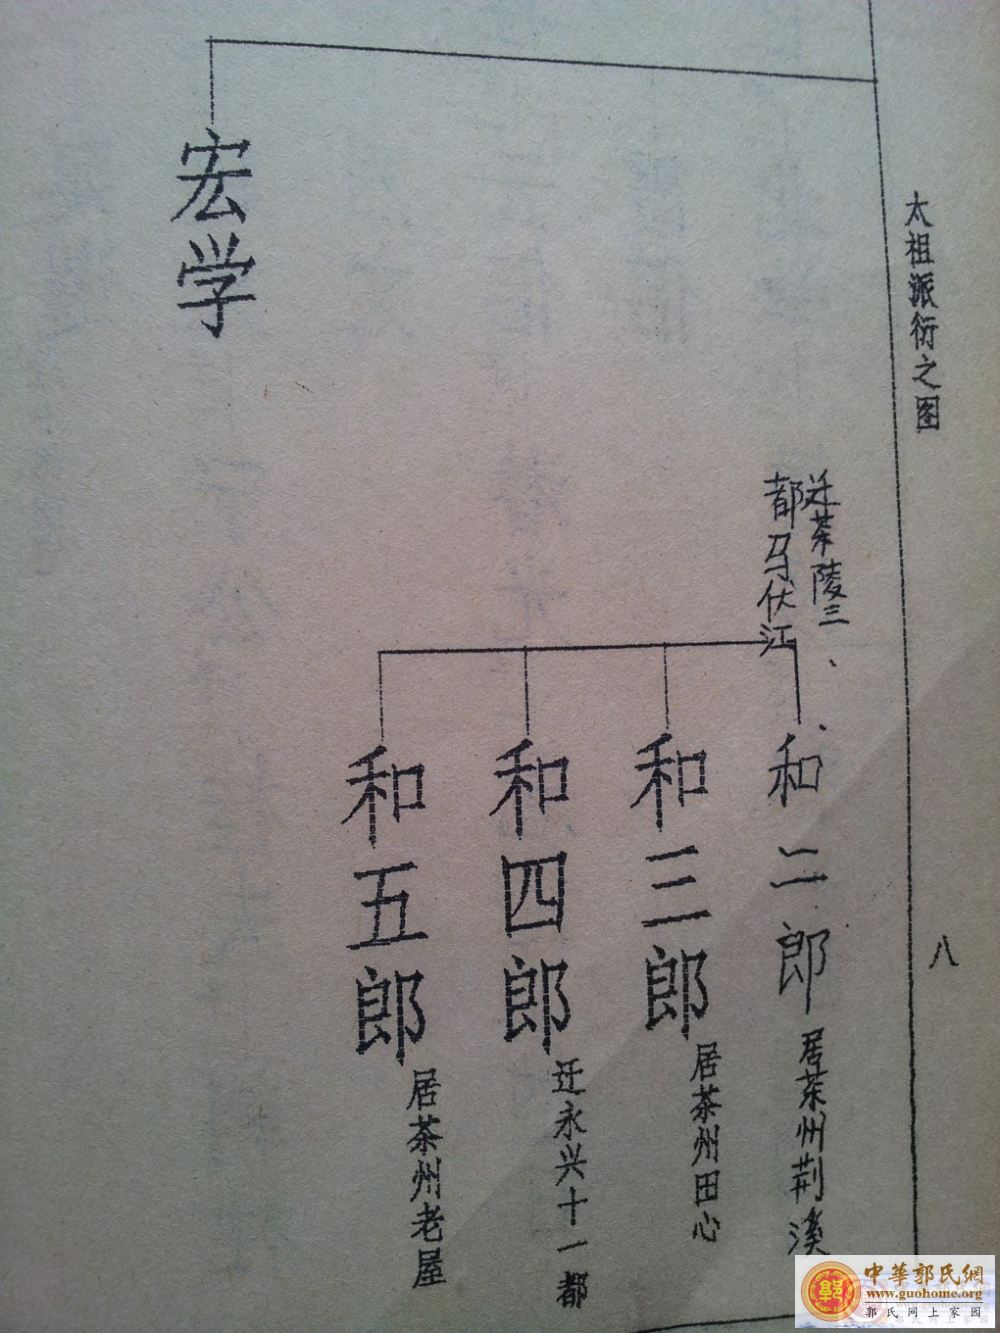 太祖派衍之图
八
迁茶陵三
都马伏江
和二郎
居茶州荆溪
和三郎
居茶州田心
和四郎
迁永兴十一都
和五郎
居茶州老屋
宏学
中華郭氏網
www.guohome.org
郭氏网上家园